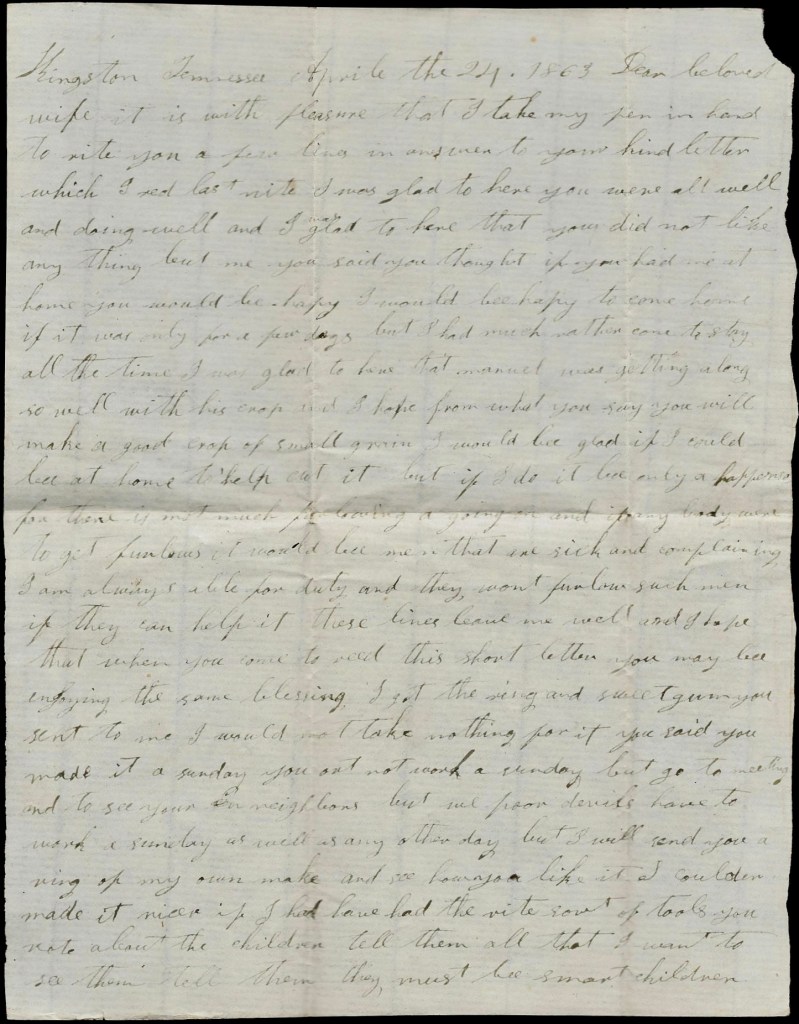 Kingston Tennessee Aprile the 24. 1863 Dear beloved
wife it is with pleasure that I take my pen in hand
to rite you a few lines in answer to your kind letter
which I red last nite I was glad to here you were all well
and doing well and I was glad to here that you did not like
any thing but me you said you thought if you had me at
home you would be hapy I would bee hapy to come home
if it was only for a few days but I had much rather come to stay
all the time I was glad to here that manuel was getting along
so well with his crop and I hope from what you say you will
make a good crop of small grain I would bee glad if I could
bee at home to help cut it but if I do it bee only a
for there is not much furlowing a going on and if any body were
to get furlows it would bee men that are sick and complaining
I am always able for duty and they wont furlow such men
if they can help it these lines leave me well and I hope
that when you come to reed this short letter you may bee
enjoying the same blessing I got the ring and sweet gum you
sent to me I would not take nothing for it you said you
made it a sunday you ort not work a sunday but go to meeting
and to see your neighbors but we poor devils have to
work a sunday as well as any other day but I will send you a
ring of my own make and see how you like it I coulden
made it nicer if I had have had the rite sort of tools you
rote about the children tell them all that I want to
see them tell them they must bee smart children